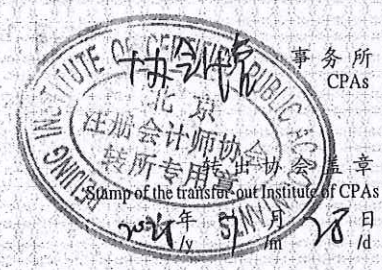 事务所
CPAs
BEIJING INSTITUTE OF CERTIFIED PUBLIC ACCOUNTANTS
北京
注册会计师协会
转所专用章
转出协会盖章
Stamp of the transfer-out Institute of CPAs
年 月 28 日
/y /m /d